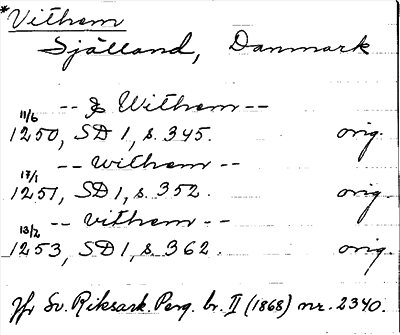 *Vithem
Själland, Danmark
-- J Withem --
11/6
1250, SD 1, s. 345. orig.
-- withem --
17/1
1251, SD 1, s. 352. orig.
-- vithem --
13/2
1253, SD 1, s. 362. orig.
Jfr Sv. Riksark. Perg. br. II (1868) nr. 2340.